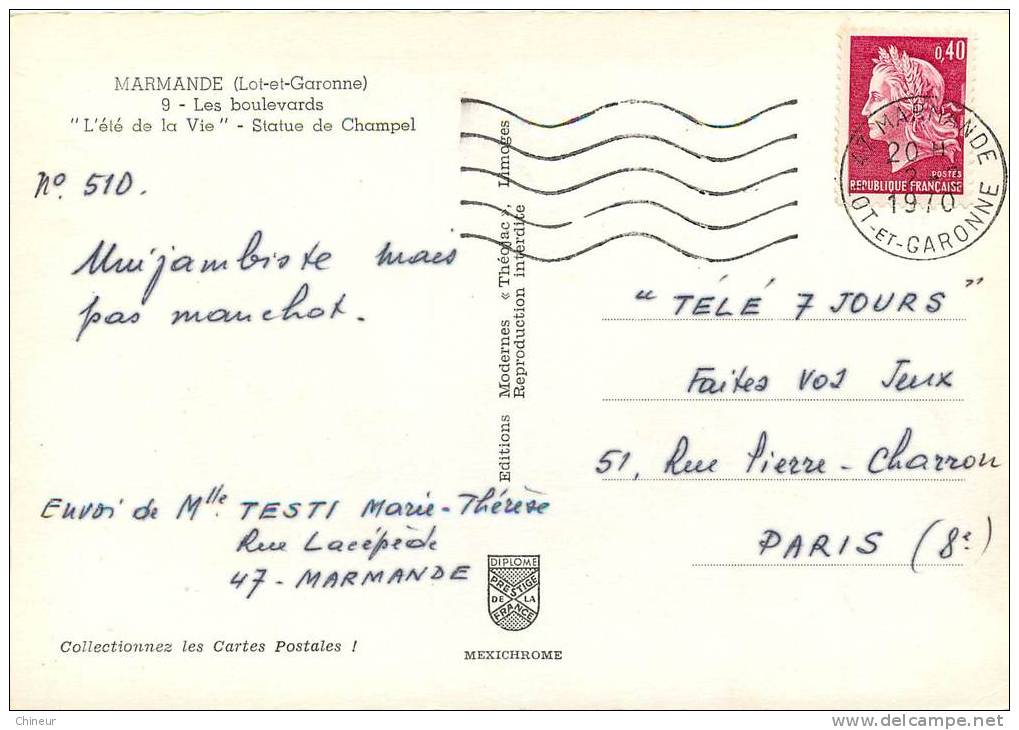 MARMANDE (Lot-et-Garonne)
9 - Les boulevards
"L'été de la Vie" - Statue de Champel
Nº 510.
Unijambiste mais
pas manchot.
Envoi de Mlle TESTI Marie-Thérèse
Rue Lacépède
47 - MARMANDE
Collectionnez les Cartes Postales !
Editions Modernes « Théojac », Limoges
Reproduction interdite
DIPLOME
PRESTIGE
DE LA
FRANCE
MEXICHROME
0,40
POSTES
REPUBLIQUE FRANÇAISE
47 MARMANDE
20 H
1970
LOT-ET-GARONNE
"TÉLÉ 7 JOURS"
Faites vos Jeux
51, Rue Pierre-Charron
PARIS (8e)
Chineur
www.delcampe.net